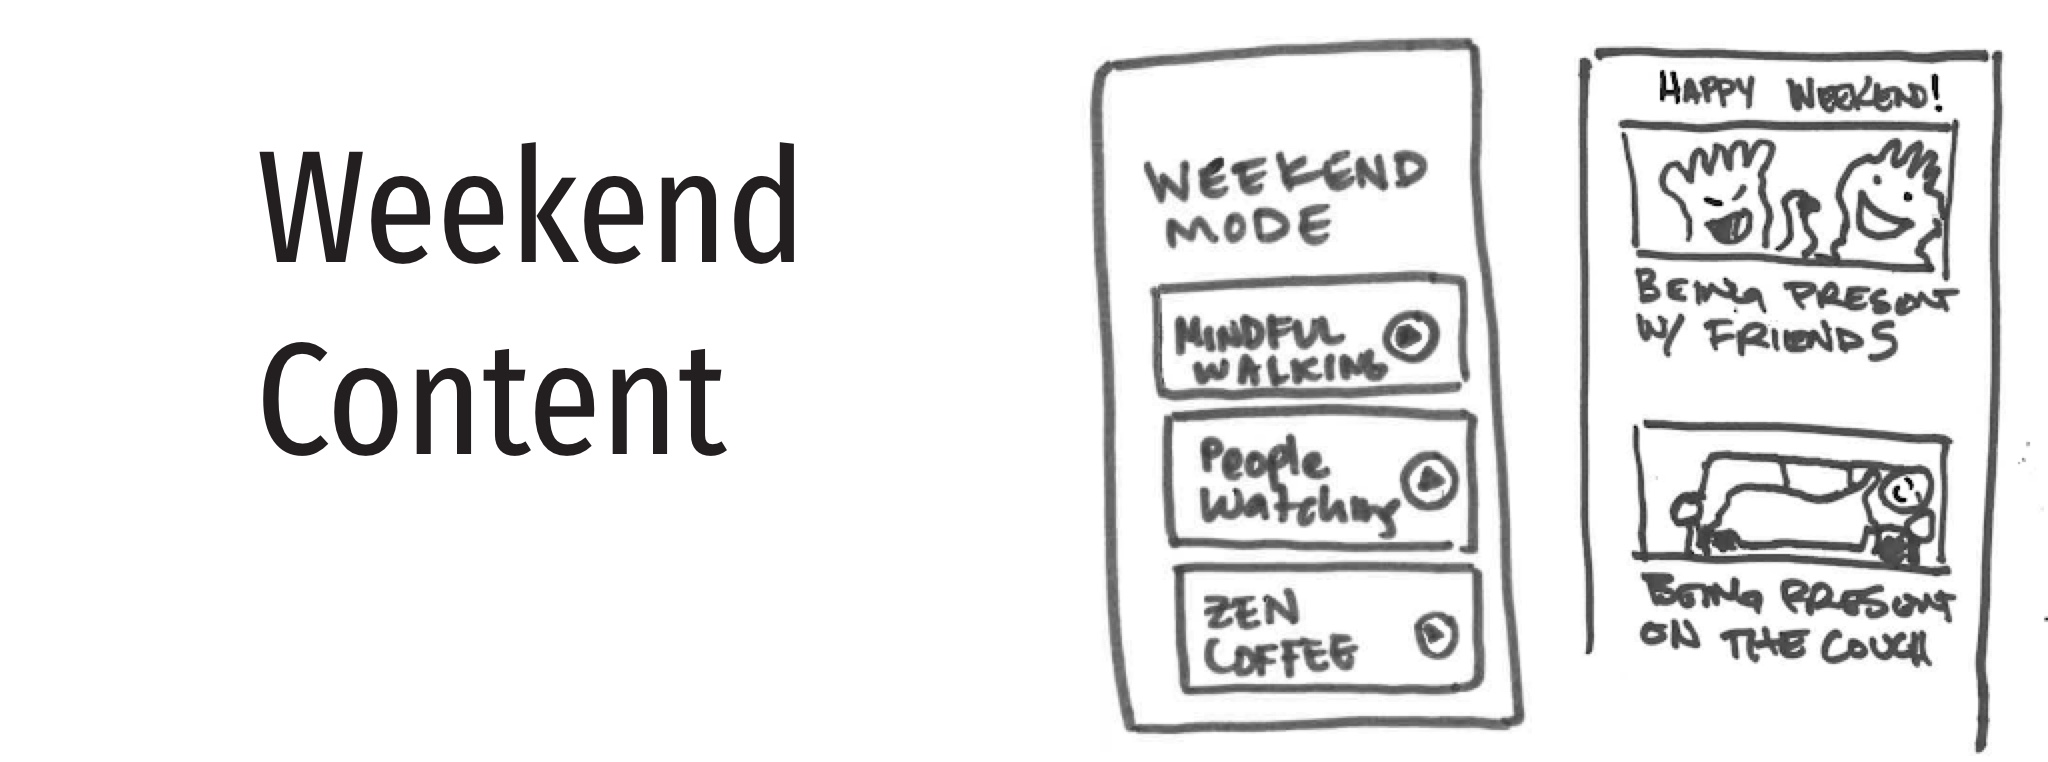 Weekend
Content
WEEKEND
MODE
MINDFUL
WALKING
People
Watching
ZEN
COFFEE
HAPPY WEEKEND!
BEING PRESENT
W/ FRIENDS
BEING PRESENT
ON THE COUCH